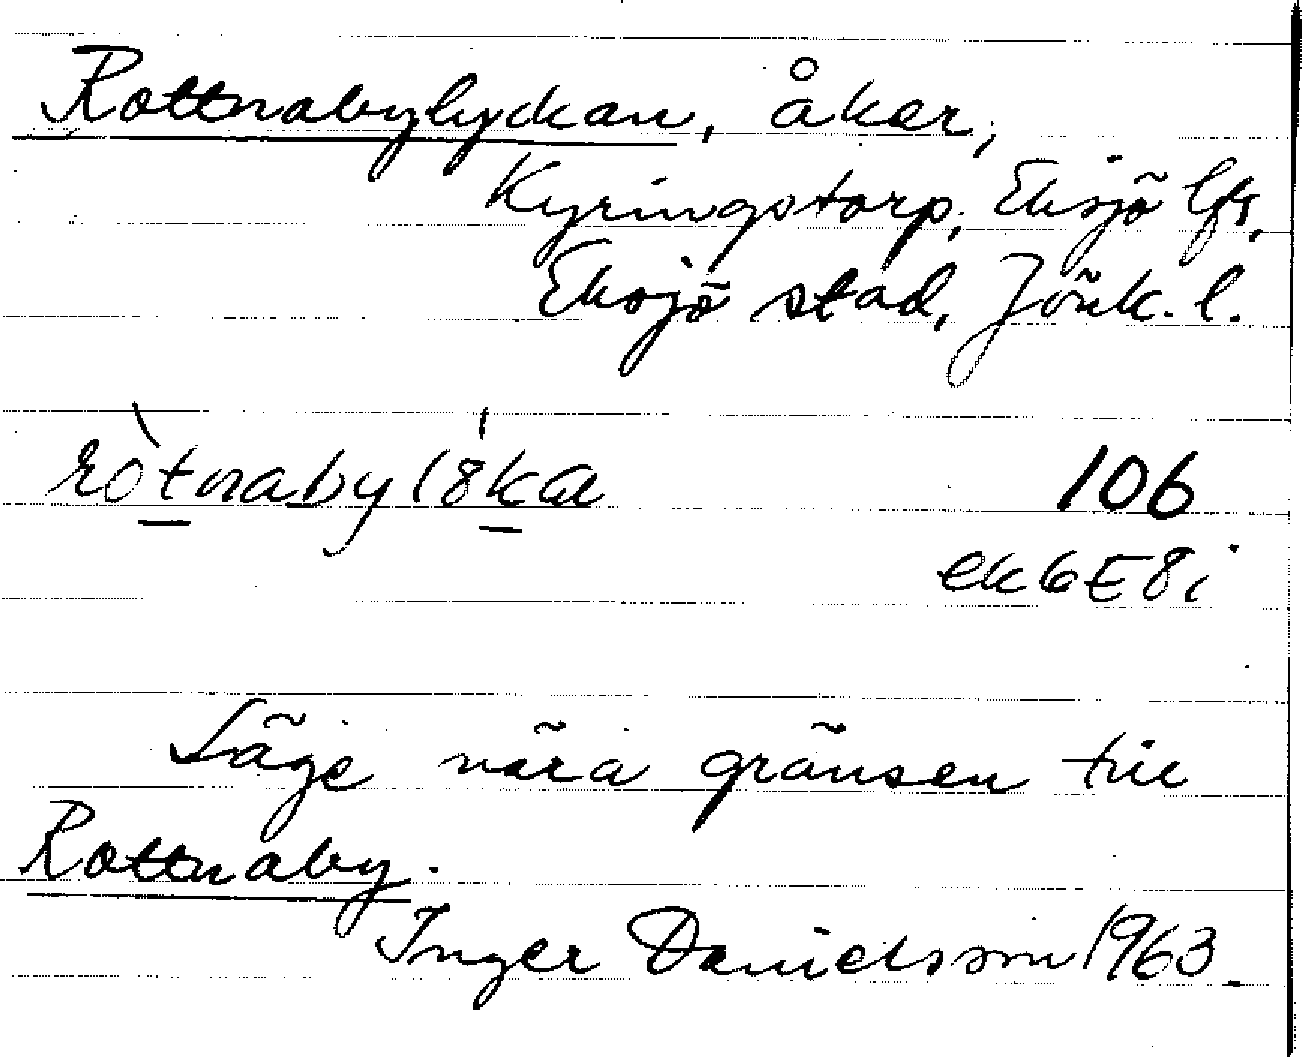 Rottnabylyckan, åker,
Kyringstorp, Eksjö lfs,
Eksjö stad, Jönk. l.
ròt̲nabylö́k̲a 106
ek 6E8i
Läge nära gränsen till
Rottnaby.
Inger Danielsson 1963